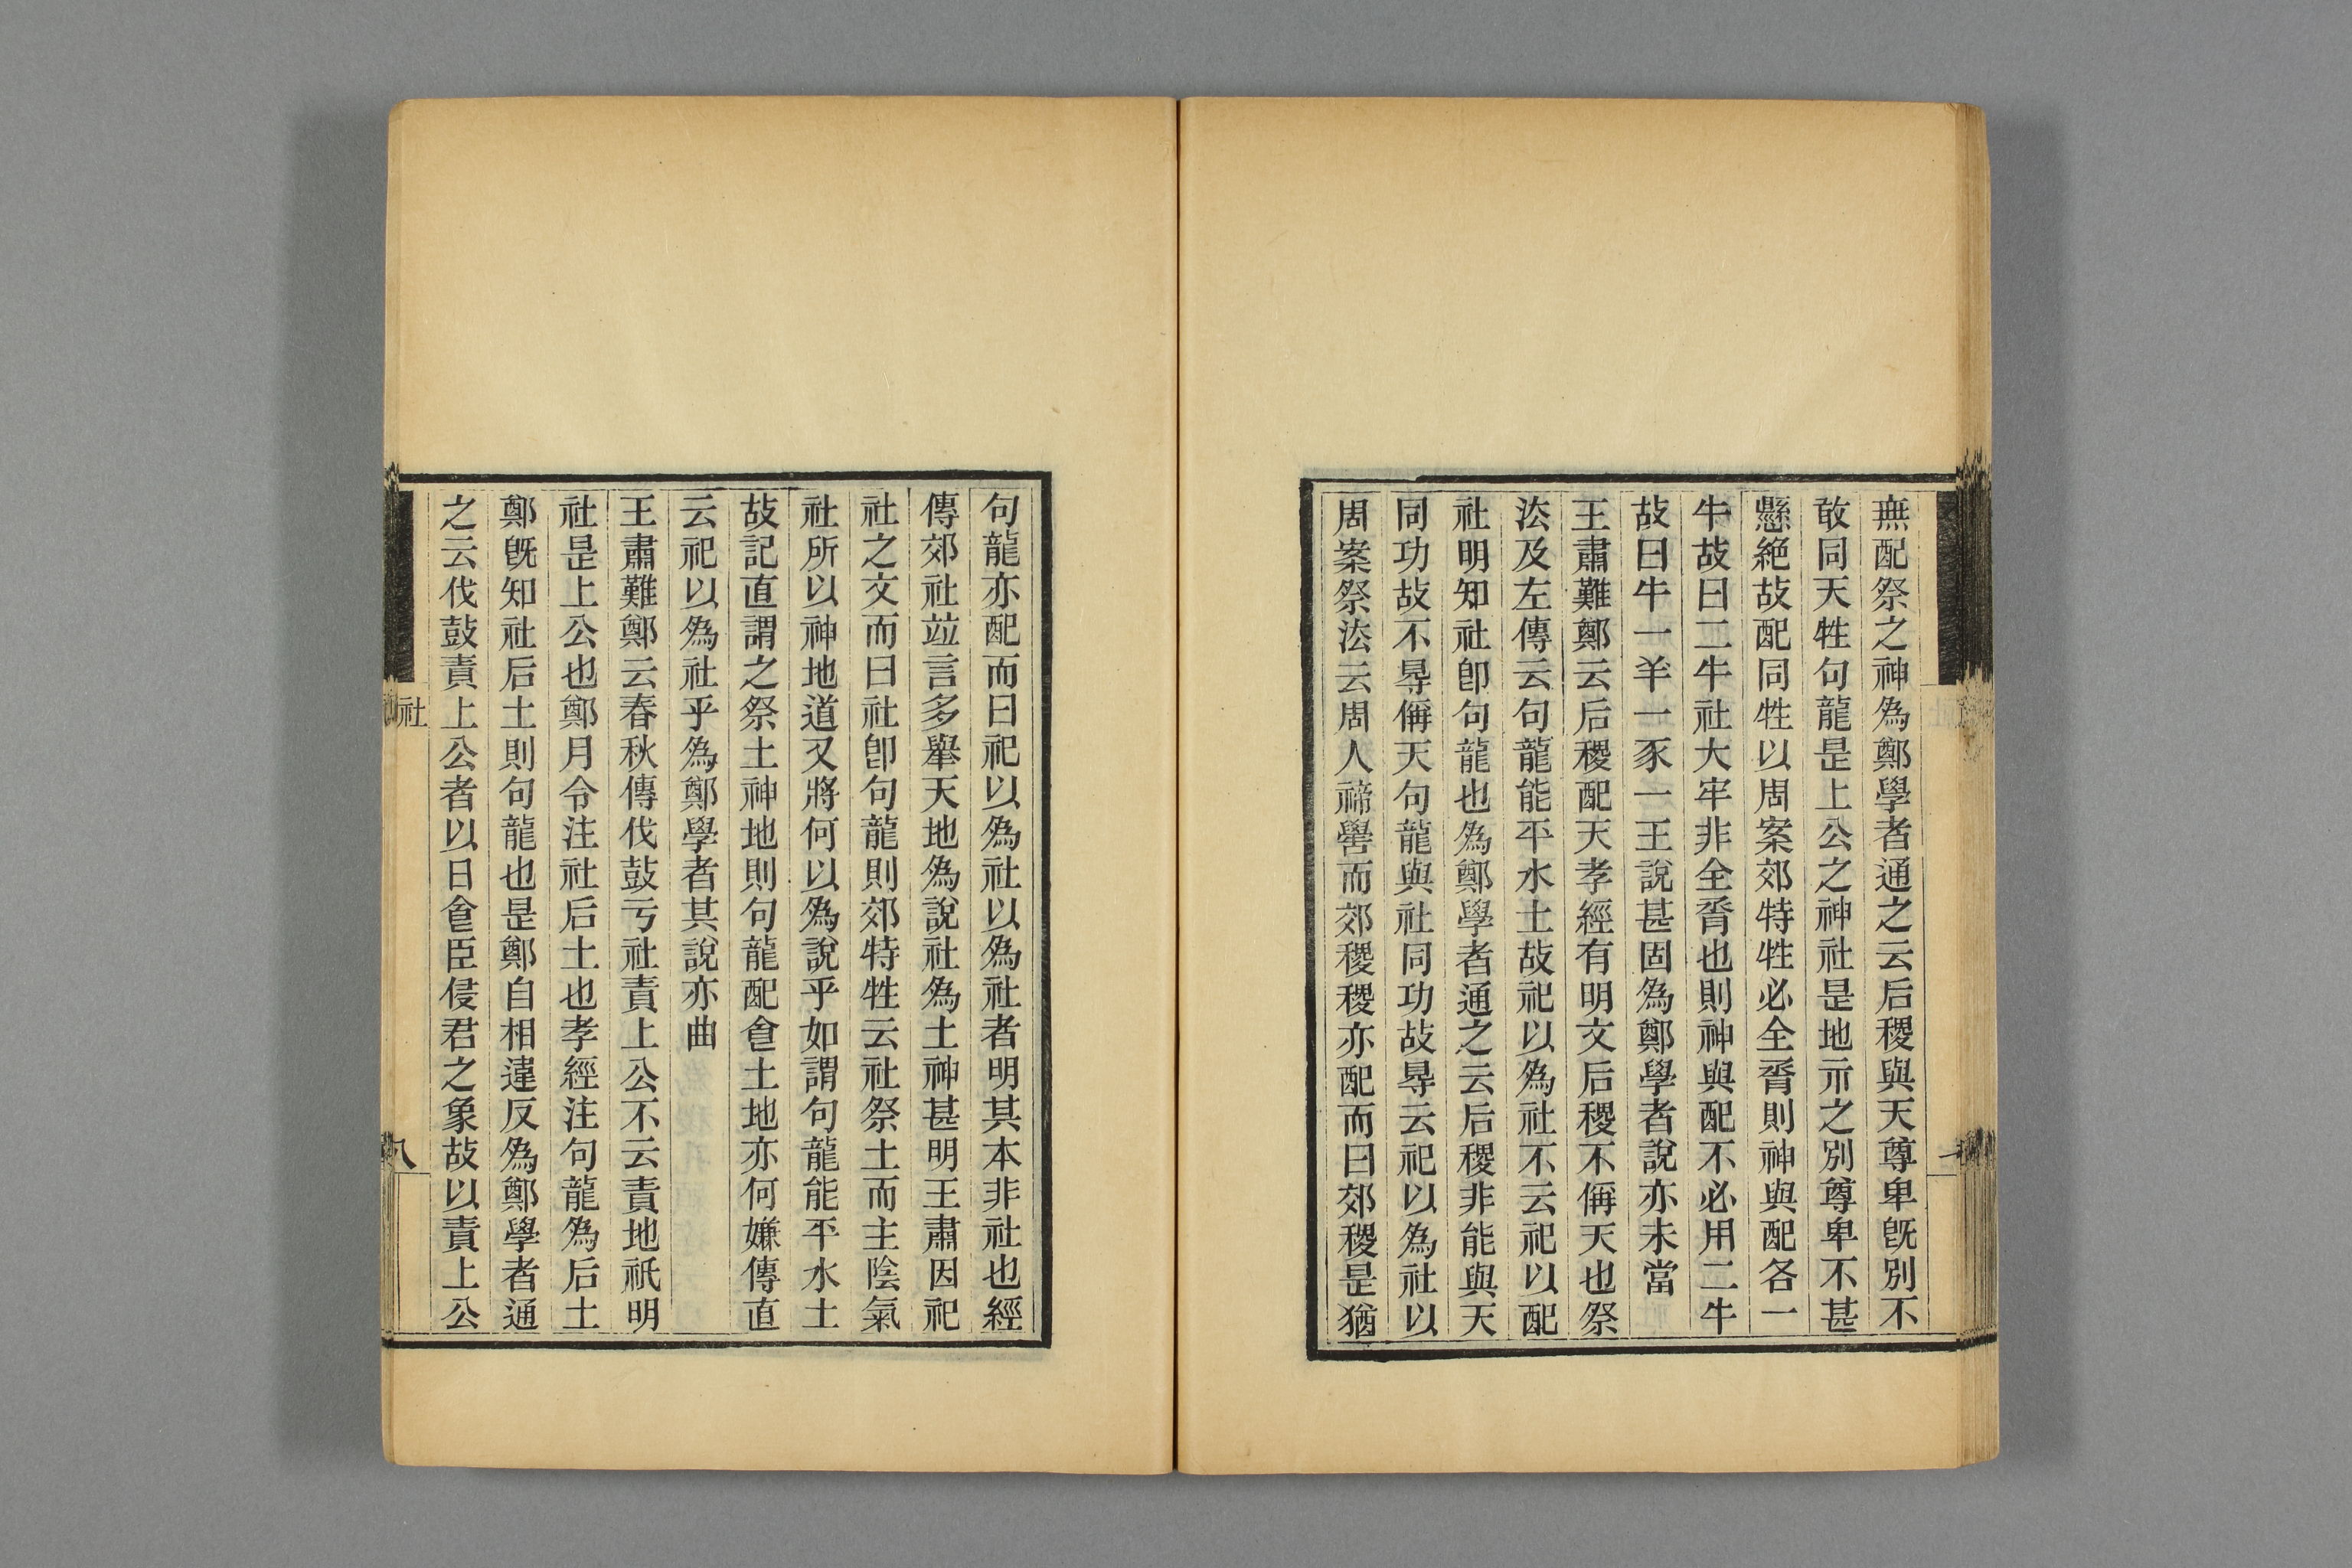 無配祭之神為鄭學者通之云后稷與天尊卑旣別不
敢同天牲句龍是上公之神社是地示之別尊卑不甚
懸絕故配同牲以周案郊特牲必全脀則神與配各一
牛故曰二牛社大牢非全脀也則神與配不必用二牛
故曰牛一羊一豕一王說甚固為鄭學者說亦未當
王肅難鄭云后稷配天孝經有明文后稷不偁天也祭
法及左傳云句龍能平水土故祀以為社不云祀以配
社明知社卽句龍也為鄭學者通之云后稷非能與天
同功故不㝵偁天句龍與社同功故㝵云祀以為社以
周案祭法云周人禘嚳而郊稷稷亦配而曰郊稷是猶
句龍亦配而曰祀以為社以為社者明其本非社也經
傳郊社竝言多舉天地為說社為土神甚明王肅因祀
社之文而曰社卽句龍則郊特牲云社祭土而主陰氣
社所以神地道又將何以為說乎如謂句龍能平水土
故記直謂之祭土神地則句龍配食土地亦何嫌傳直
云祀以為社乎為鄭學者其說亦曲
王肅難鄭云春秋傳伐鼓亏社責上公不云責地祇明
社是上公也鄭月令注社后土也孝經注句龍為后土
鄭旣知社后土則句龍也是鄭自相違反為鄭學者通
之云伐鼓責上公者以日食臣侵君之象故以責上公
社
八